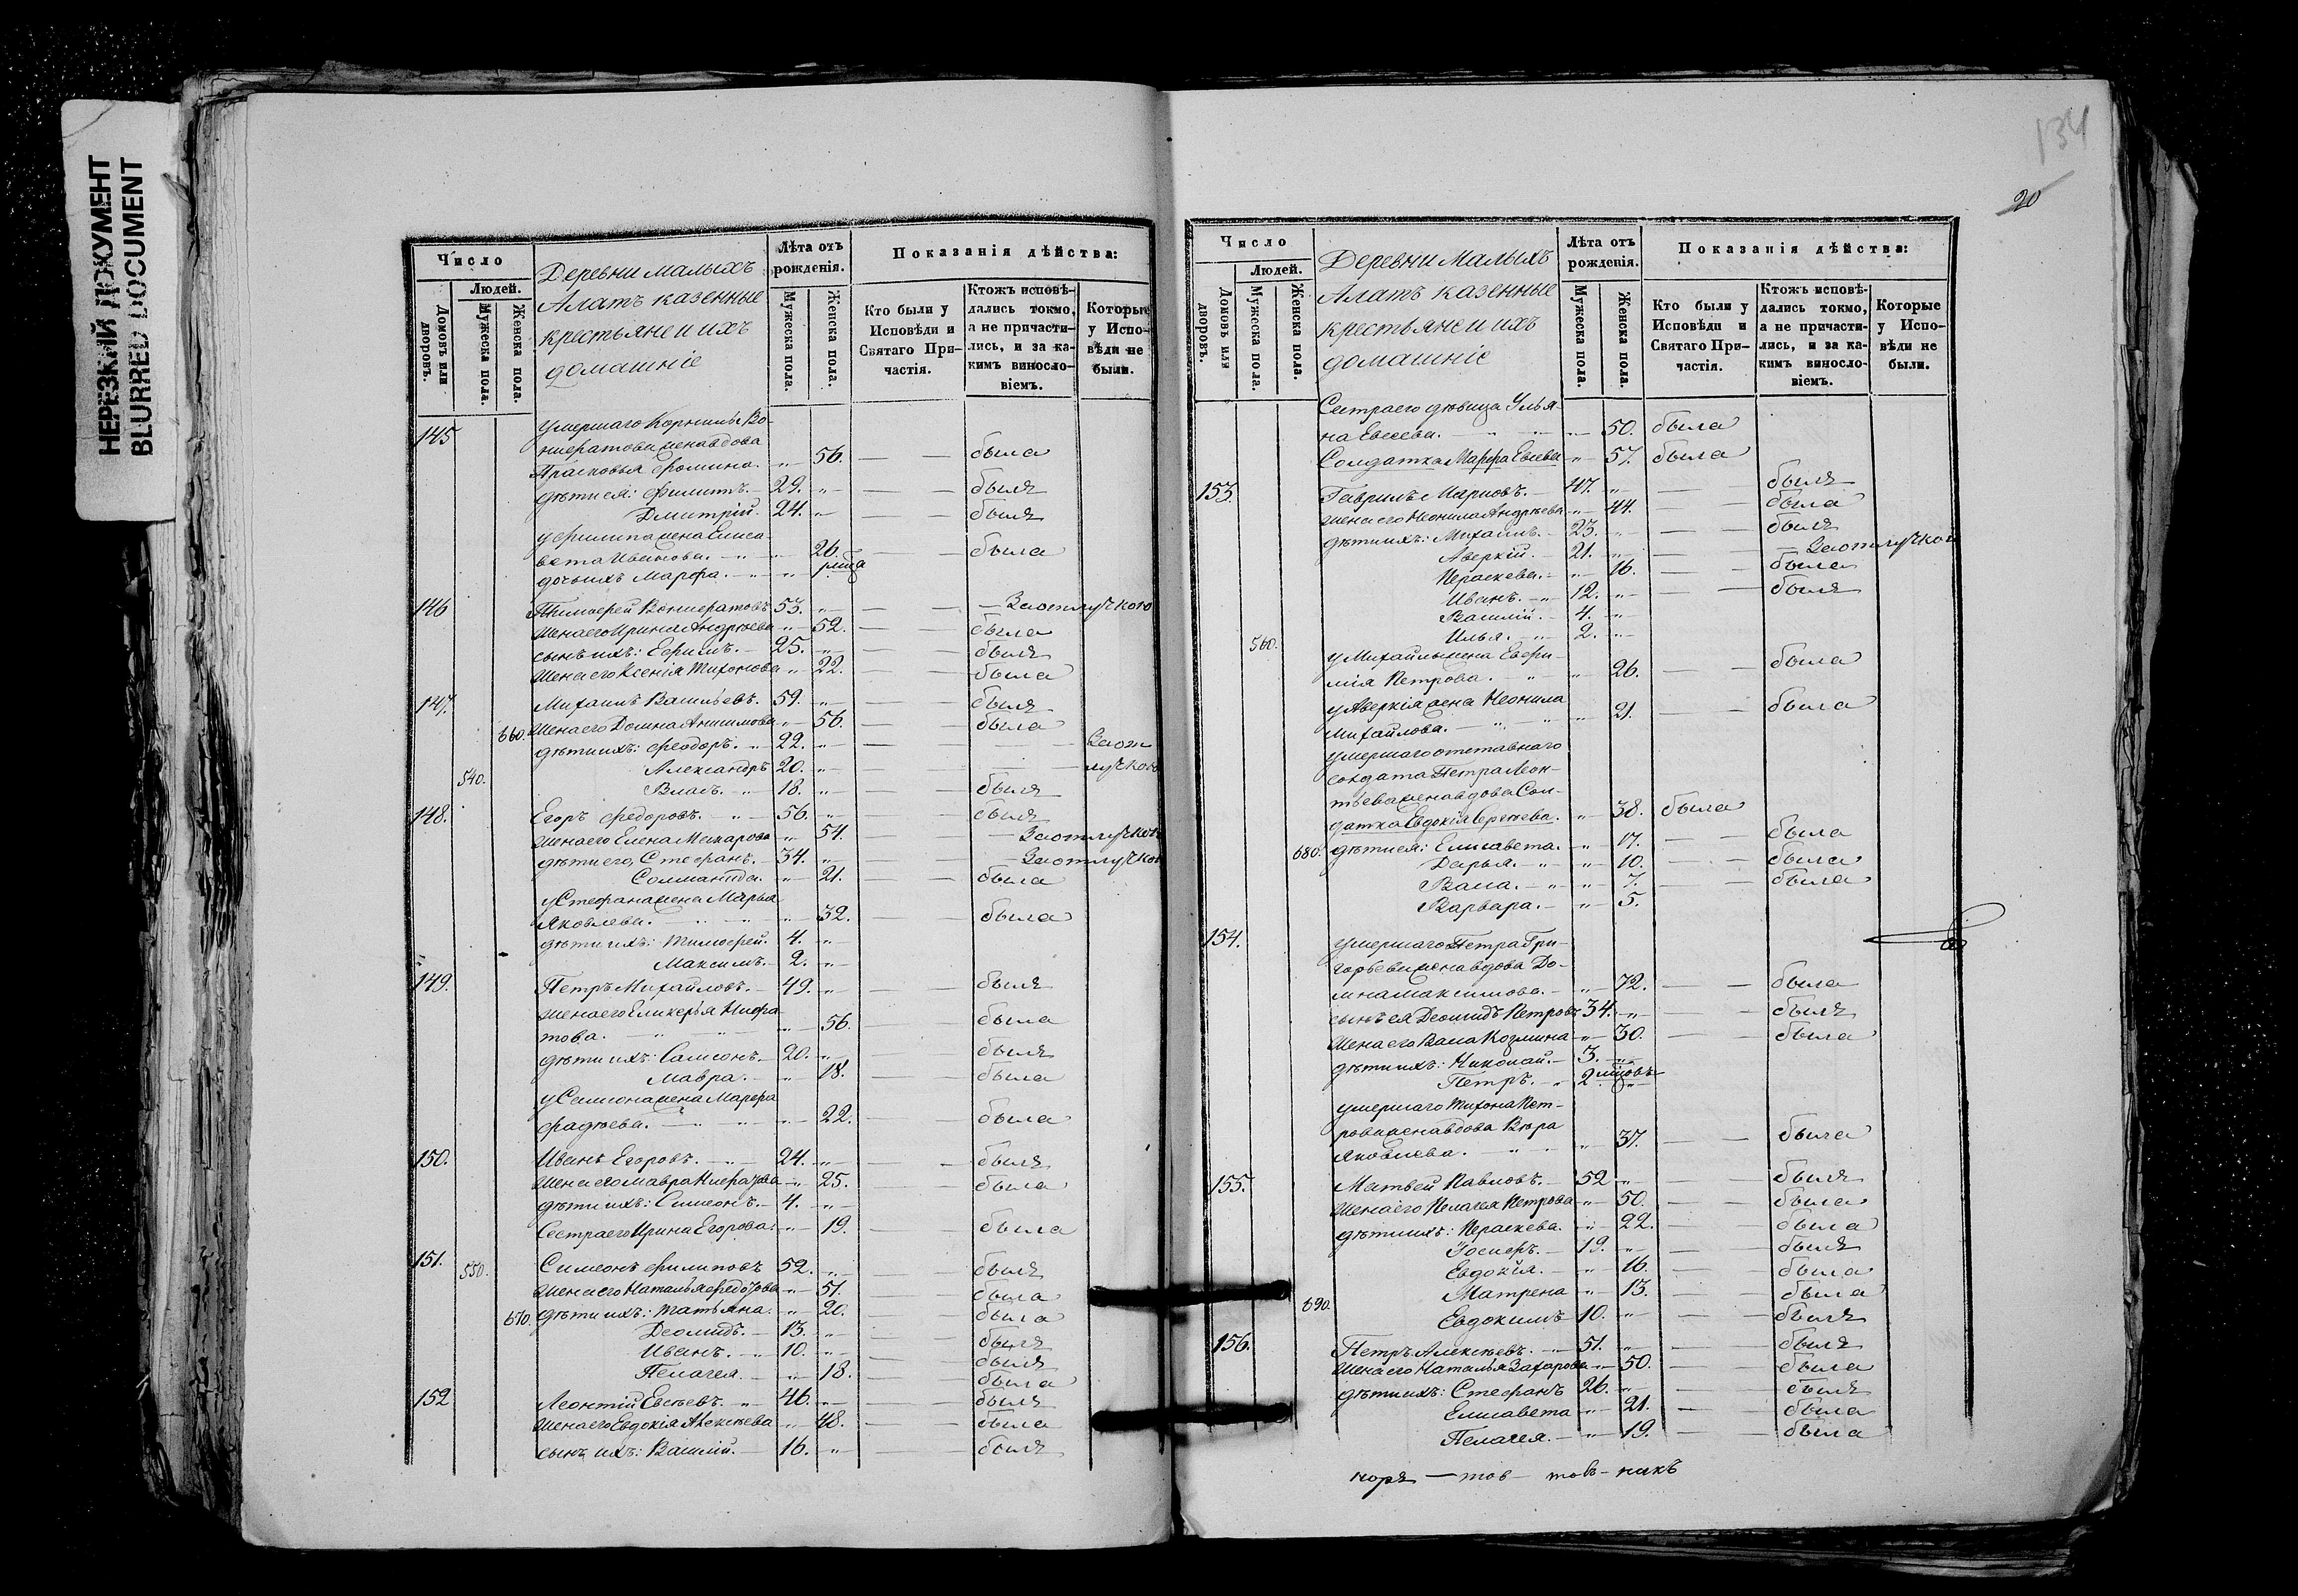 НЕРЕЗКИЙ ДОКУМЕНТ
BLURRED DOCUMENT
Число
Людей.
Домовъ или дворовъ.
Мужеска пола.
Женска пола.
Деревни Малыхъ
Алатъ казенные
крестьяне и ихъ
домашніе
Лѣта отъ рожденія.
Мужеска пола.
Женска пола.
Показанія дѣйства:
Кто были у Исповѣди и Святаго Причастія.
Ктожъ исповѣдались токмо, а не причастились, и за какимъ винословіемъ.
Которые у Исповѣди не были.
145 умершаго Корнилы Во-
нифатова жена вдова
Прасковья Фомина. 56. была
дѣти ея: Филиппъ. 29. былъ
Дмитрій. 24. былъ
у Филипа жена Елиса-
вета Иванова. 26. была
дочь ихъ Марфа. 1 мца
146 Тимофей Вонифатовъ 53. За отлучкою
жена его Ирина Андреева 52. была
сынъ ихъ: Ефимъ. 25. былъ
жена его Ксенія Тихонова 22. была
147. Михаилъ Васильевъ. 59. былъ
660. жена его Домна Анисимова 56. была
дѣти ихъ: Феодоръ. 22. За от-
Александръ 20. лучкою
540. Власъ. 18. былъ
148. Егоръ Федоровъ. 56. былъ
жена его Елена Макарова 54. За отлучкою
дѣти его, Стефанъ. 34. За отлучкою
Соломанида. 21. была
у Стефана жена Марья
Яковлева. 32. была
дѣти ихъ: Тимофей. 4.
Максимъ. 2.
149. Петръ Михайловъ. 49. былъ
жена его Гликерья Нифа-
това. 56. была
дѣти ихъ: Самсонъ. 20. былъ
Мавра. 18. была
у Самсона жена Марфа
Фадѣева. 22. была
150. Иванъ Егоровъ. 24. былъ
жена его Мавра 25. была
дѣти ихъ: Симеонъ. 4.
Сестра его Ирина Егорова. 19. была
151. 550. Симеонъ Филиповъ 52. былъ
жена его Наталья Федотова 51. была
670. дѣти ихъ: Татьяна. 20. была
Деомидъ. 13. былъ
Иванъ. 10. былъ
Пелагея. 18. была
152 Леонтій Евсѣевъ. 46. былъ
жена его Евдокія Алексѣева 48. была
сынъ ихъ: Василій. 16. былъ
134
20
Число
Людей.
Домовъ или дворовъ.
Мужеска пола.
Женска пола.
Деревни Малыхъ
Алатъ казенные
крестьяне и ихъ
домашніе
Лѣта отъ рожденія.
Мужеска пола.
Женска пола.
Показанія дѣйства:
Кто были у Исповѣди и Святаго Причастія.
Ктожъ исповѣдались токмо, а не причастились, и за какимъ винословіемъ.
Которые у Исповѣди не были.
Сестра его дѣвица Улья-
на Евсеева. 50. была
Солдатка Марфа Евсеева 57. была
153. Гаврилъ Марковъ. 47. былъ
жена его Неонила Андреева 44. была
дѣти ихъ: Михаилъ. 23. былъ
Аверкій. 21. За отлучкою
Пераскева. 16. была
Иванъ. 12. былъ
Василій. 4.
560. Илья. 2.
у Михайлы жена Евфи-
мія Петрова. 26. была
у Аверкія жена Неонила
Михайлова. 21. была
умершаго отставнаго
солдата Петра Леон-
тьева жена вдова Сол-
датка Евдокія Сергеева. 38. была
680. дѣти ея: Елисавета. 17. была
Дарья. 10. была
Васса. 7. была
Варвара. 5.
154. умершаго Петра Гри-
горьева жена вдова До-
мна Максимова. 72. была
сынъ ея Деомидъ Петровъ 34. былъ
жена его Васса Козмина 30. была
дѣти ихъ: Николай. 3.
Петръ. 2 мцовъ
умершаго Тихона Пет-
рова жена вдова Вѣра
Яковлева. 37. была
155. Матвей Павловъ. 52 былъ
жена его Пелагея Петрова 50. была
дѣти ихъ: Пераскева. 22. была
Іосифъ. 19. былъ
Евдокія. 16. была
690. Матрена 13. была
Евдокимъ 10. былъ
156. Петръ Алексѣевъ. 51. былъ
жена его Наталья Захарова 50. была
дѣти ихъ: Стефанъ 26. былъ
Елисавета 21. была
Пелагея. 19. была